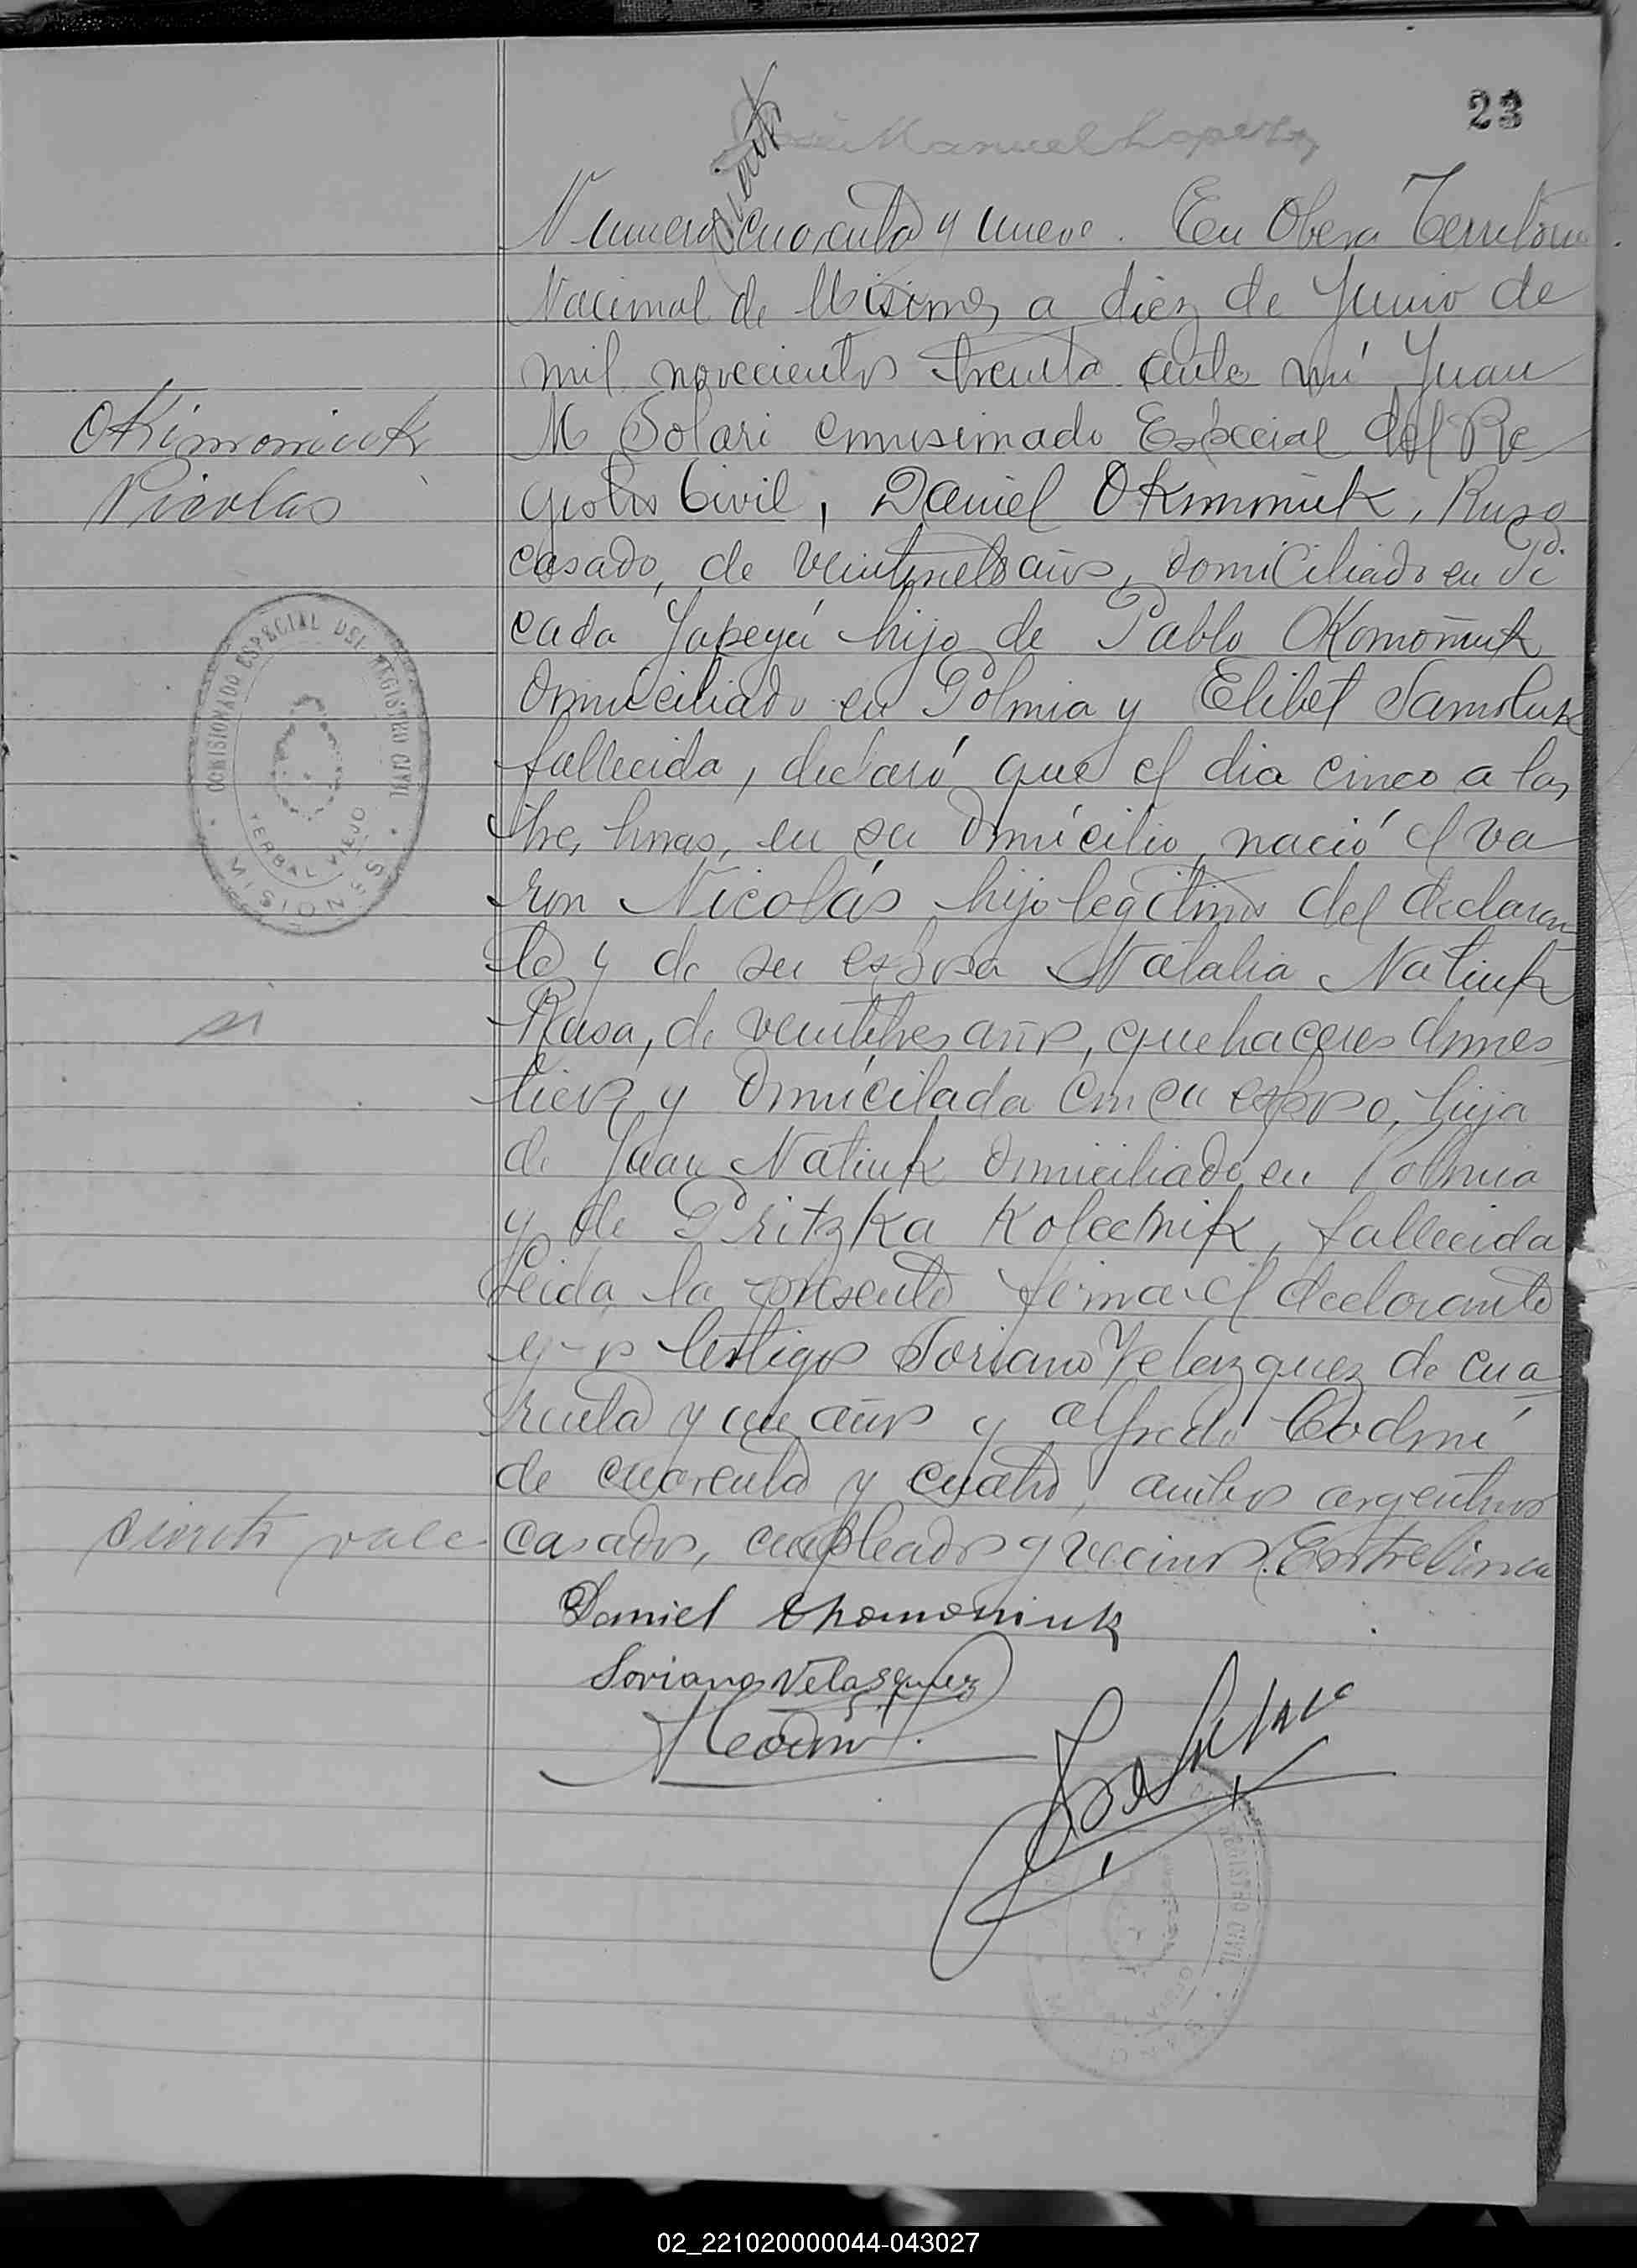 23
José Manuel Lopez
ciento
Numero cuarenta y nueve. En Obera Territorio
Nacional de Misiones a diez de Junio de
mil novecientos treinta ante mí Juan
M Solari comisionado Especial del Re
gistro Civil, Daniel Okomoniuk, Ruso
casado, de años, domiciliado en Pi
cada Yapeyú hijo de Pablo Okomoniuk
domiciliado en Polonia y Elibet Samoluk
fallecida, declaró que el dia cinco a las
tres horas, en su domicilio, nació el va
ron Nicolás hijo legitimo del declaran
te y de su esposa Natalia Natiuk
Rusa, de veintitres años, quehaceres domes
ticos y domicilada con su esposo, hija
de Juan Natiuk domiciliado en Polonia
y de Pritzka Kolecnik, fallecida
Leida la presente firma el declarante
y los testigos Soriano Velazquez de cua
renta y un años y Alfredo Codoni
de cuarenta y cuatro, ambos argentinos
casados, empleados y vecinos. Entrelinea
ciento vale
Okimoniuk
Nicolas
COMISIONADO ESPECIAL DEL REGISTRO CIVIL
YERBAL VIEJO
MISIONES
Daniel Okomoniuk
Soriano Velasquez
A Codoni
REGISTRO CIVIL
02_221020000044-043027